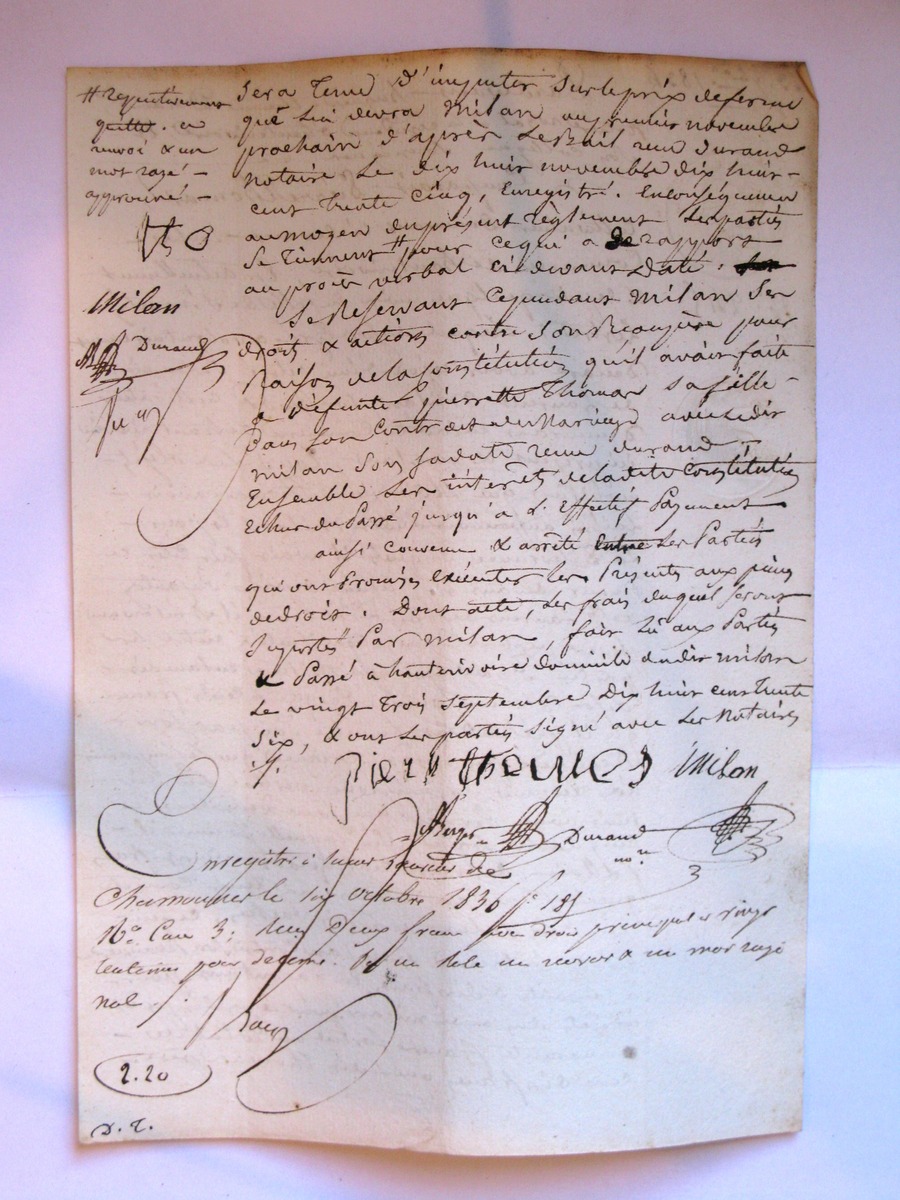 # respectivement
quitte. un
renvoi & un
mot rayé –
approuvé –
Milan
Durand
sera tenu d'imputer sur le prix de ferme
que lui devra Milan au premier novembre
prochain d'après le Bail reçu durand
notaire le dix huit novembre dix huit –
cent trente cinq, Enregistré. En conséquence
au moyen du présent règlement les parties
se tiennent # pour ce qui a de rapport
au procès verbal ci devant daté.
Se Réservant cependant milan ses
droits & actions contre son Beaupère pour
Raison de la Constitution qu'il avait faite
a défunte pierrette Thomas sa fille –
Dans son Contract de Mariage avec ledit
milan son à date reçu durand –
Ensemble les intérêts de la dite Constitution
Echus du Passé jusqu'à l'Effectif Payement
ainsi convenu & arrêté entre les Parties
qui ont Promis exécuter les Présents aux peines
de droit. Dont acte, les frais duquel seront
suportés Par milan, fait lu aux Parties
& Passé à hauterivoire domicile dudit milan
le vingt trois septembre dix huit cent trente
six, & ont les parties signé avec les Notaires
Milan
Durand
nore
Enregistré à
le 1er octobre 1836 fo 181
Ro Case 3; Reçu Deux francs pour droit principal & vingt
centimes pour décime. un renvoi & un mot rayé
nul
2.20
D. T.